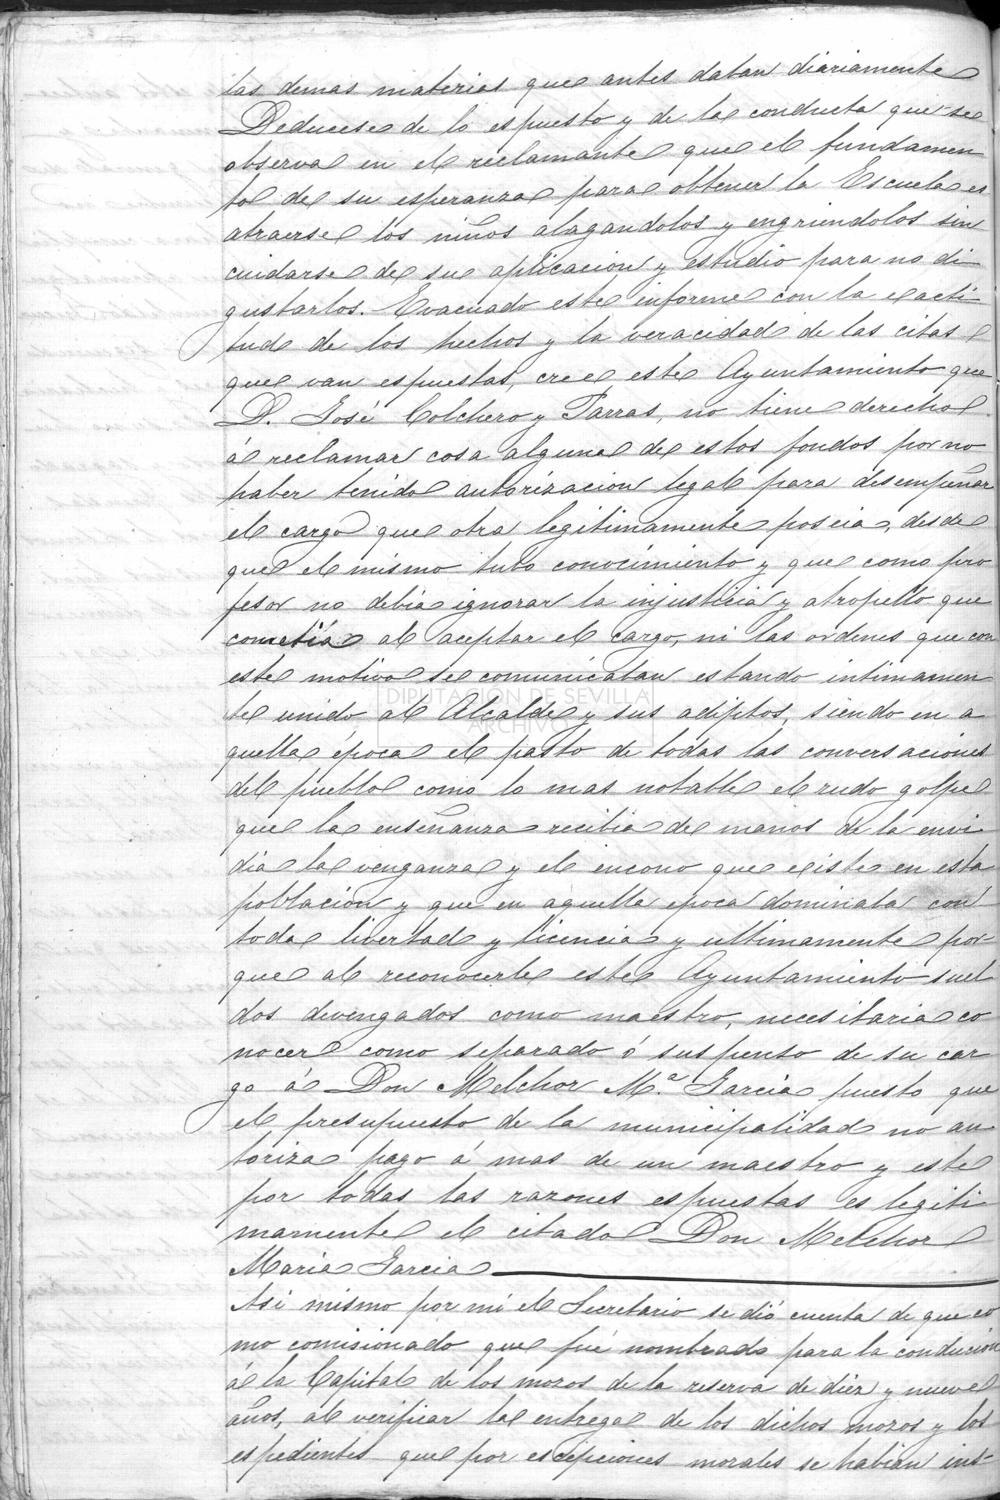 las demas materias que antes daban diariamente
Deducese de lo espuesto y de la conducta que se
observa en el reclamante que el fundamen
to de su esperanza para obtener la Escuela es
atraerse los niños alagandolos y engriendolos sin
cuidarse de su aplicacion y estudio para no di
gustarlos. Evacuado este informe con la exacti
tud de los hechos y la veracidad de las citas
que van espuestas, cree este Ayuntamiento que
D. José Colchero y Parras, no tiene derecho
á reclamar cosa alguna de estos fondos por no
haber tenido autorizacion legal para desempeñar
el cargo que otro legitimamente poseia, desde
que el mismo tubo conocimiento y que como pro
fesor no debia ignorar la injusticia y atropello que
cometia al aceptar el cargo, ni las ordenes que con
este motivo se comunicaban estando intimamen
te unido al Alcalde y sus adiptos, siendo en a
quella época el pasto de todas las conversaciones
del pueblo como lo mas notable el rudo golpe
que la enseñanza recibia de manos de la envi
dia la venganza y el encono que existe en esta
poblacion y que en aquella epoca dominaba con
toda livertad y licencia y ultimamente por
que al reconocerle este Ayuntamiento suel
dos devengados como maestro, necesitaria co
nocer como separado ó suspenso de su car
go á Don Melchor Mª. Garcia puesto que
el presupuesto de la municipalidad no au
toriza pago á mas de un maestro y este
por todas las razones espuestas es legiti
mamente el citado Don Melchor
Maria Garcia
Asi mismo por mi el Secretario se dió cuenta de que co
mo comisionado que fué nombrado para la conducion
á la Capital de los mozos de la reserva de diez y nueve
años, al verificar la entrega de los dichos mozos y los
espedientes que por escepciones morales se habian ins-
DIPUTACIÓN DE SEVILLA
ARCHIVO